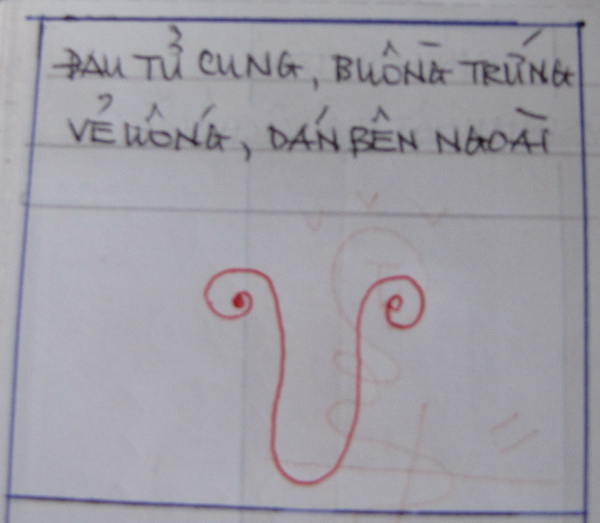 ĐAU TỬ CUNG, BUỒNG TRỨNG
VẺ UỐNG, DÁN BÊN NGOÀI